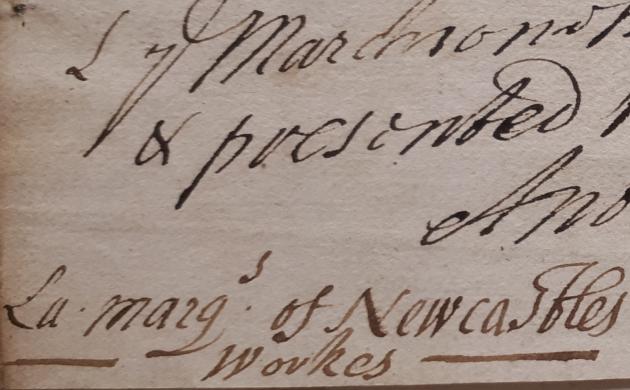 Ly Marchmont
& presented
Ano
La. marqs. of Newcastles
Workes